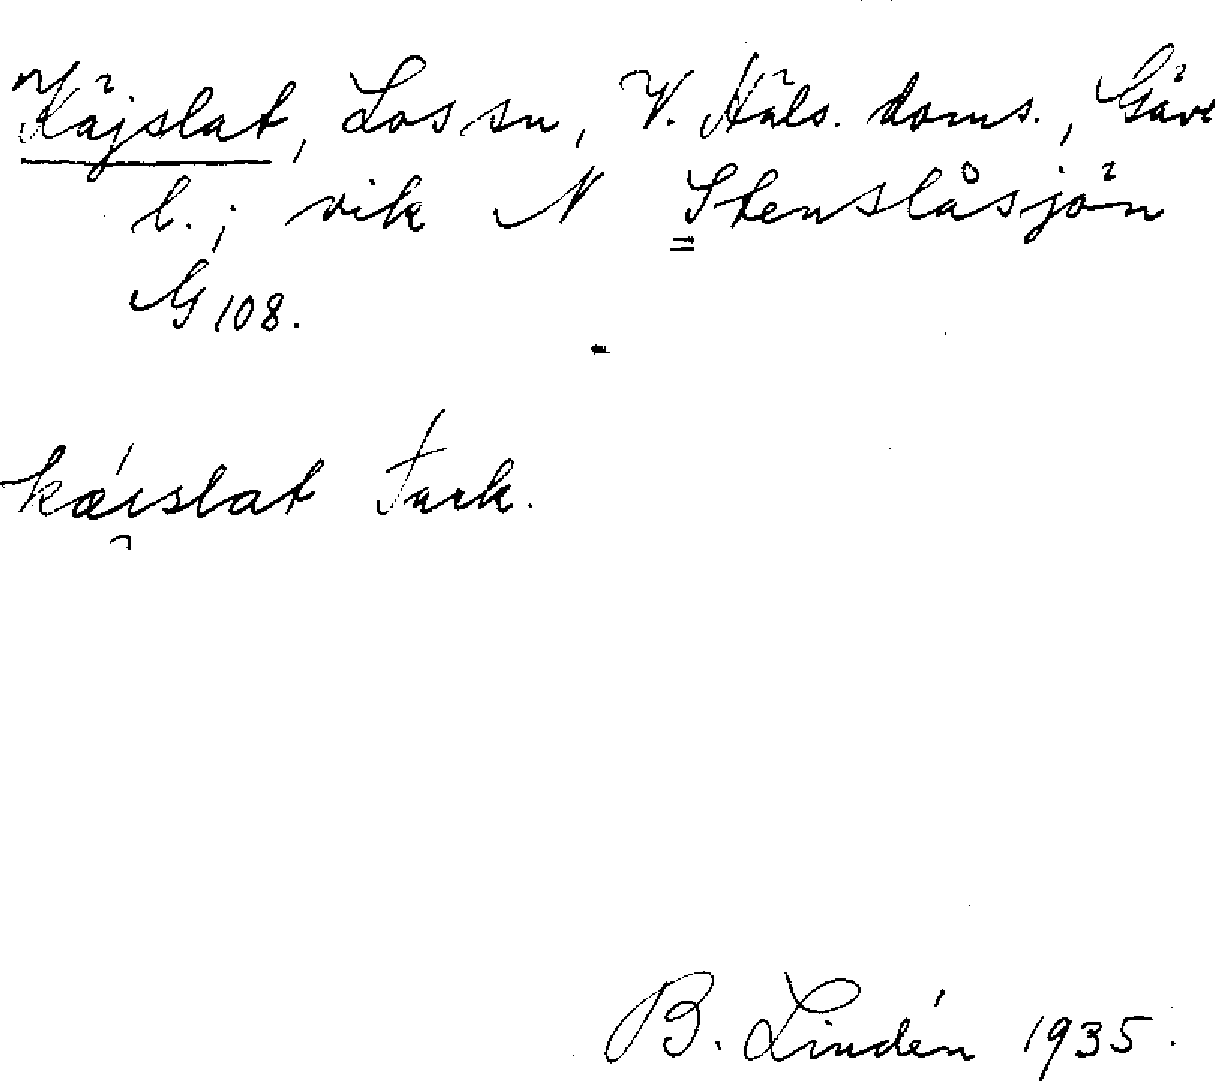 Käjslat, Los sn, V. Häls. doms., Gävl
l.; vik N Stenslåsjön
G 108.
kæ̀ıslat Fark.
B. Lindén 1935.